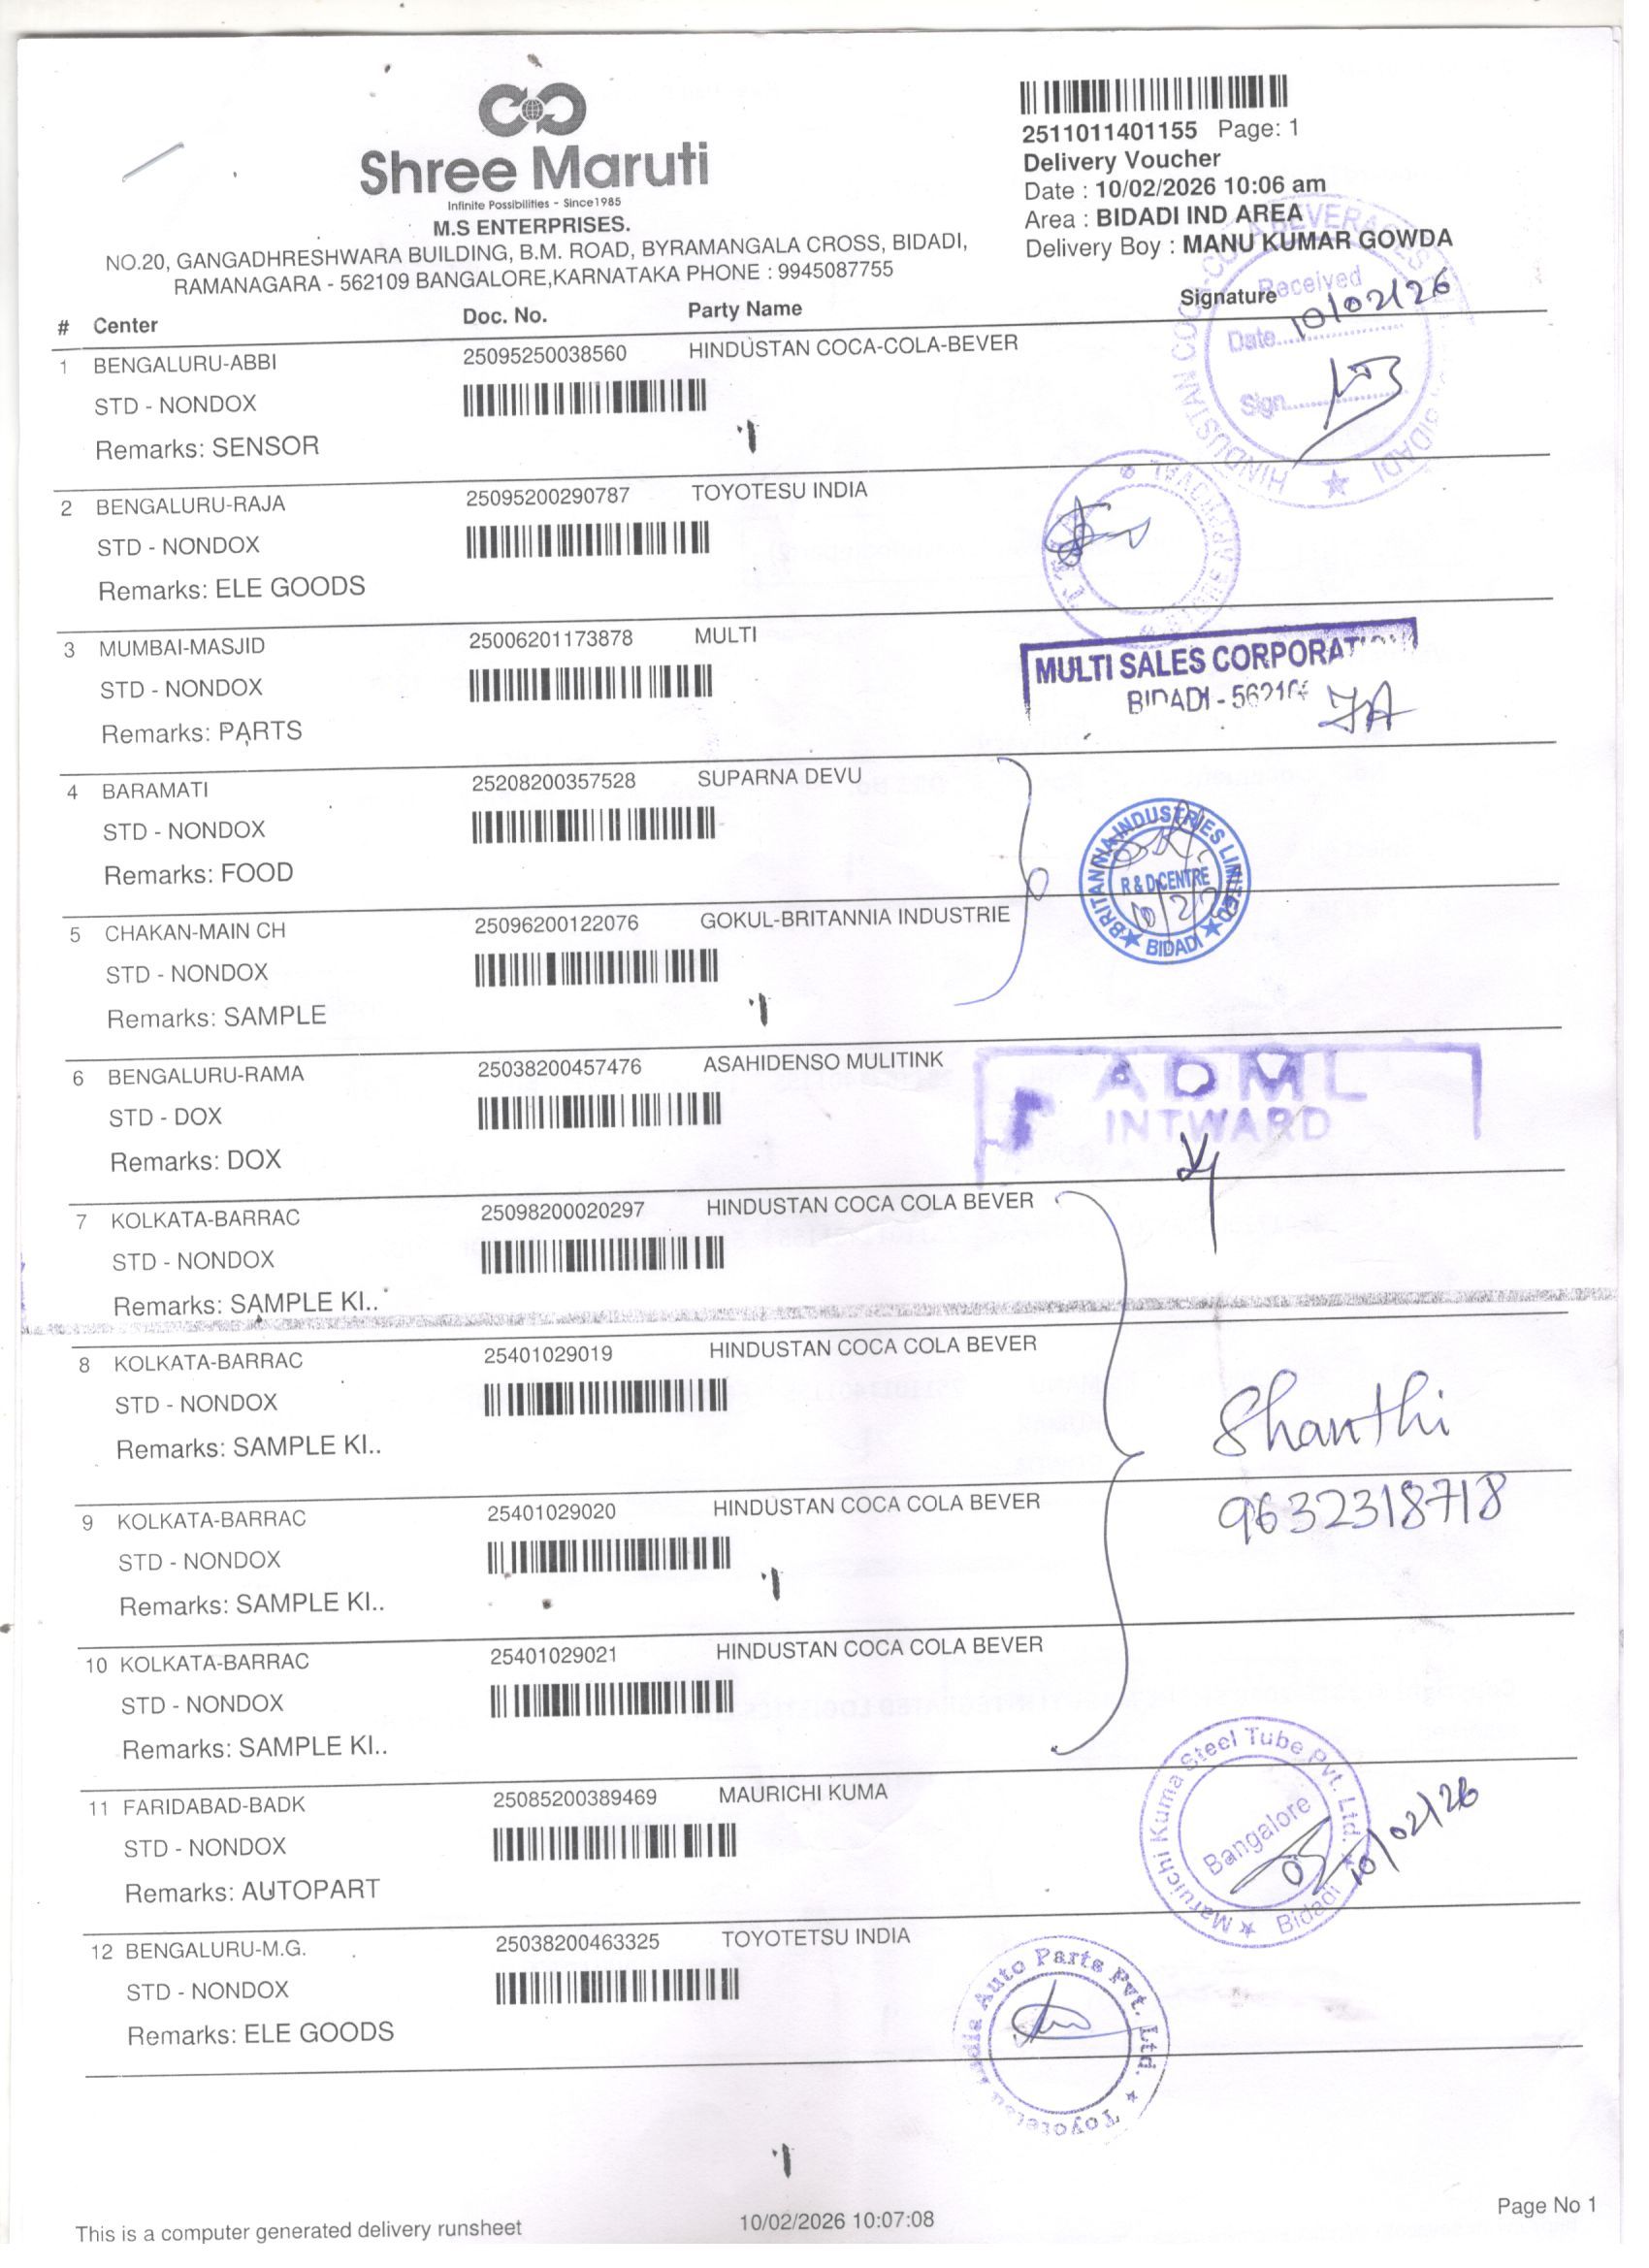 Shree Maruti
Infinite Possibilities - Since1985
M.S ENTERPRISES.
NO.20, GANGADHRESHWARA BUILDING, B.M. ROAD, BYRAMANGALA CROSS, BIDADI,
RAMANAGARA - 562109 BANGALORE,KARNATAKA PHONE : 9945087755
2511011401155 Page: 1
Delivery Voucher
Date : 10/02/2026 10:06 am
Area : BIDADI IND AREA
Delivery Boy : MANU KUMAR GOWDA
# Center Doc. No. Party Name Signature
Received
Date 10/02/26
Sign
HINDUSTAN COCA-COLA BEVERAGES BIDADI
1 BENGALURU-ABBI 25095250038560 HINDUSTAN COCA-COLA-BEVER
STD - NONDOX
Remarks: SENSOR
2 BENGALURU-RAJA 25095200290787 TOYOTESU INDIA
STD - NONDOX
Remarks: ELE GOODS
3 MUMBAI-MASJID 25006201173878 MULTI
STD - NONDOX
Remarks: PARTS
MULTI SALES CORPORATION
BIDADI - 56210
4 BARAMATI 25208200357528 SUPARNA DEVU
STD - NONDOX
Remarks: FOOD
BRITANNIA INDUSTRIES LIMITED
R & D CENTRE
BIDADI
5 CHAKAN-MAIN CH 25096200122076 GOKUL-BRITANNIA INDUSTRIE
STD - NONDOX
Remarks: SAMPLE
6 BENGALURU-RAMA 25038200457476 ASAHIDENSO MULITINK
STD - DOX
Remarks: DOX
ADML
INTWARD
7 KOLKATA-BARRAC 25098200020297 HINDUSTAN COCA COLA BEVER
STD - NONDOX
Remarks: SAMPLE KI..
8 KOLKATA-BARRAC 25401029019 HINDUSTAN COCA COLA BEVER
STD - NONDOX
Remarks: SAMPLE KI..
Shanthi
9632318718
9 KOLKATA-BARRAC 25401029020 HINDUSTAN COCA COLA BEVER
STD - NONDOX
Remarks: SAMPLE KI..
10 KOLKATA-BARRAC 25401029021 HINDUSTAN COCA COLA BEVER
STD - NONDOX
Remarks: SAMPLE KI..
11 FARIDABAD-BADK 25085200389469 MAURICHI KUMA
STD - NONDOX
Remarks: AUTOPART
Maruichi Kuma Steel Tube Pvt. Ltd.
Bangalore
Bidadi
10/02/26
12 BENGALURU-M.G. 25038200463325 TOYOTETSU INDIA
STD - NONDOX
Remarks: ELE GOODS
Toyotetsu India Auto Parts Pvt. Ltd.
This is a computer generated delivery runsheet 10/02/2026 10:07:08 Page No 1